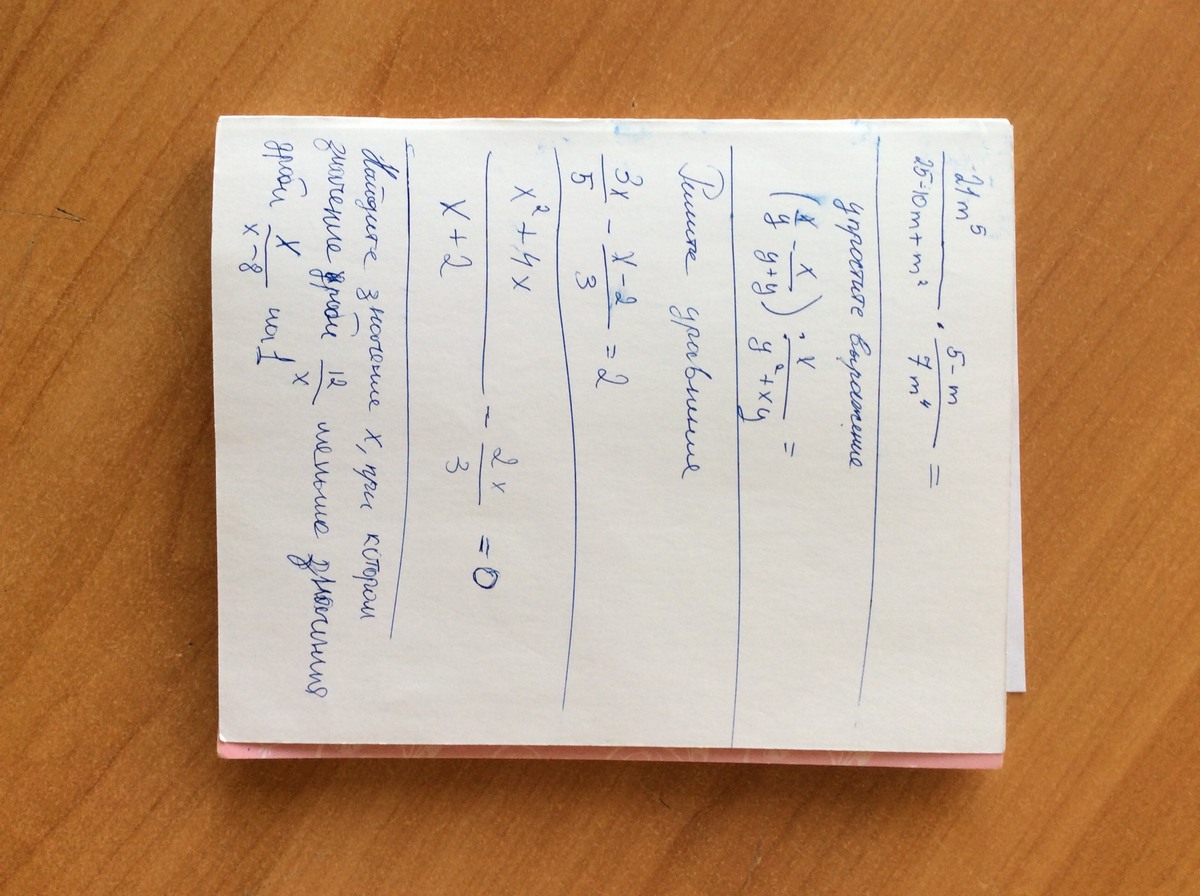 -21m⁵ / 25-10m+m² · 5-m / 7m⁴ =
упростите выражение
(x/y - x/y+y) : x/y²+xy =
Решите уравнения
3x/5 - x-2/3 = 2
x²+4x / x+2 - 2x/3 = 0
Найдите значение x, при котором
значение дроби 12/x меньше значения
дроби x/x-8 на 1